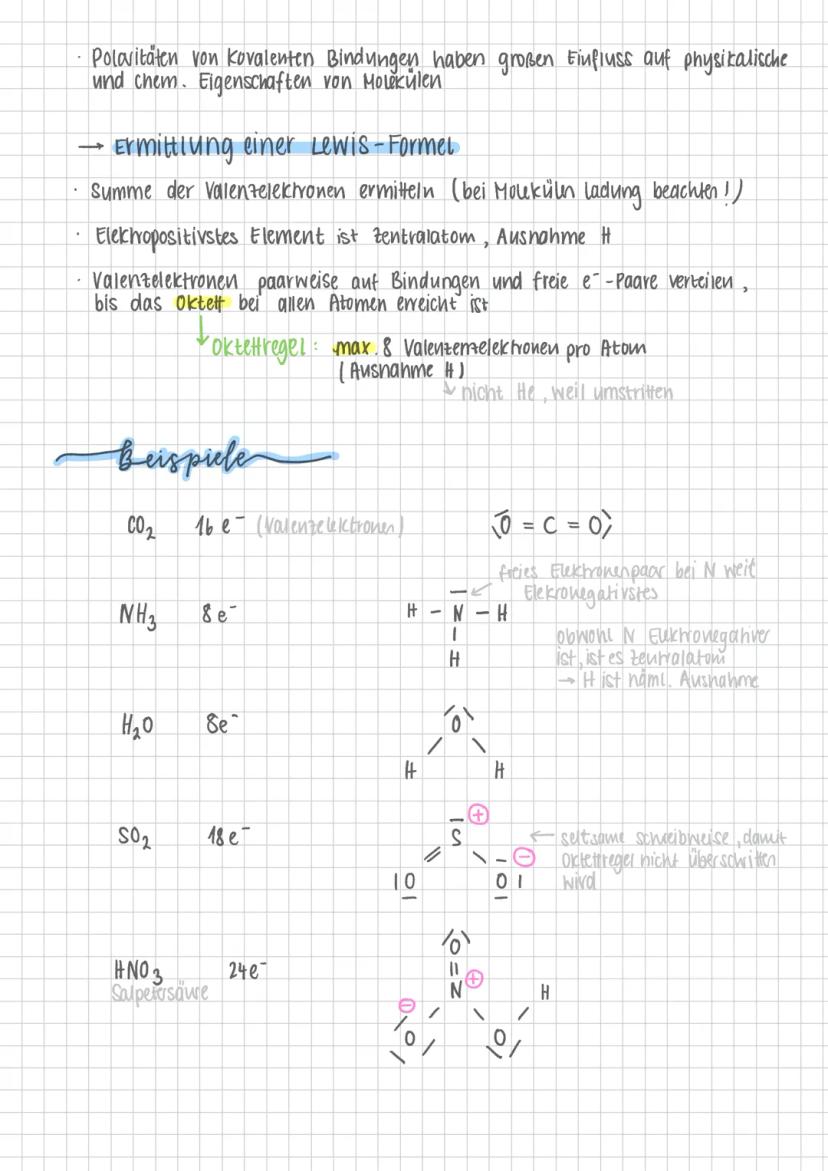 · Polaritäten von kovalenten Bindungen haben großen Einfluss auf physikalische
und chem. Eigenschaften von Molekülen
→ Ermittlung einer Lewis-Formel
· Summe der Valenzelektronen ermitteln (bei Molekülen Ladung beachten!)
· Elektropositivstes Element ist Zentralatom, Ausnahme H
· Valenzelektronen paarweise auf Bindungen und freie e⁻-Paare verteilen,
bis das Oktett bei allen Atomen erreicht ist
Oktettregel: max. 8 Valenzenzelektronen pro Atom
(Ausnahme H)
nicht He, weil umstritten
Beispiele
CO₂ 16 e⁻ (Valenzelektronen) O = C = O
freies Elektronenpaar bei N weil
Elekronegativstes
NH₃ 8 e⁻ H - N - H
H
obwohl N Elektronegativer
ist, ist es Zentralatom
→ H ist näml. Ausnahme
H₂O 8e⁻ O
H H
SO₂ 18 e⁻ S ⊕
← seltsame Schreibweise, damit
Oktettregel nicht überschritten
wird
O O ⊖
O
HNO₃ 24e⁻ N ⊕ H
Salpetersäure
⊖ O O